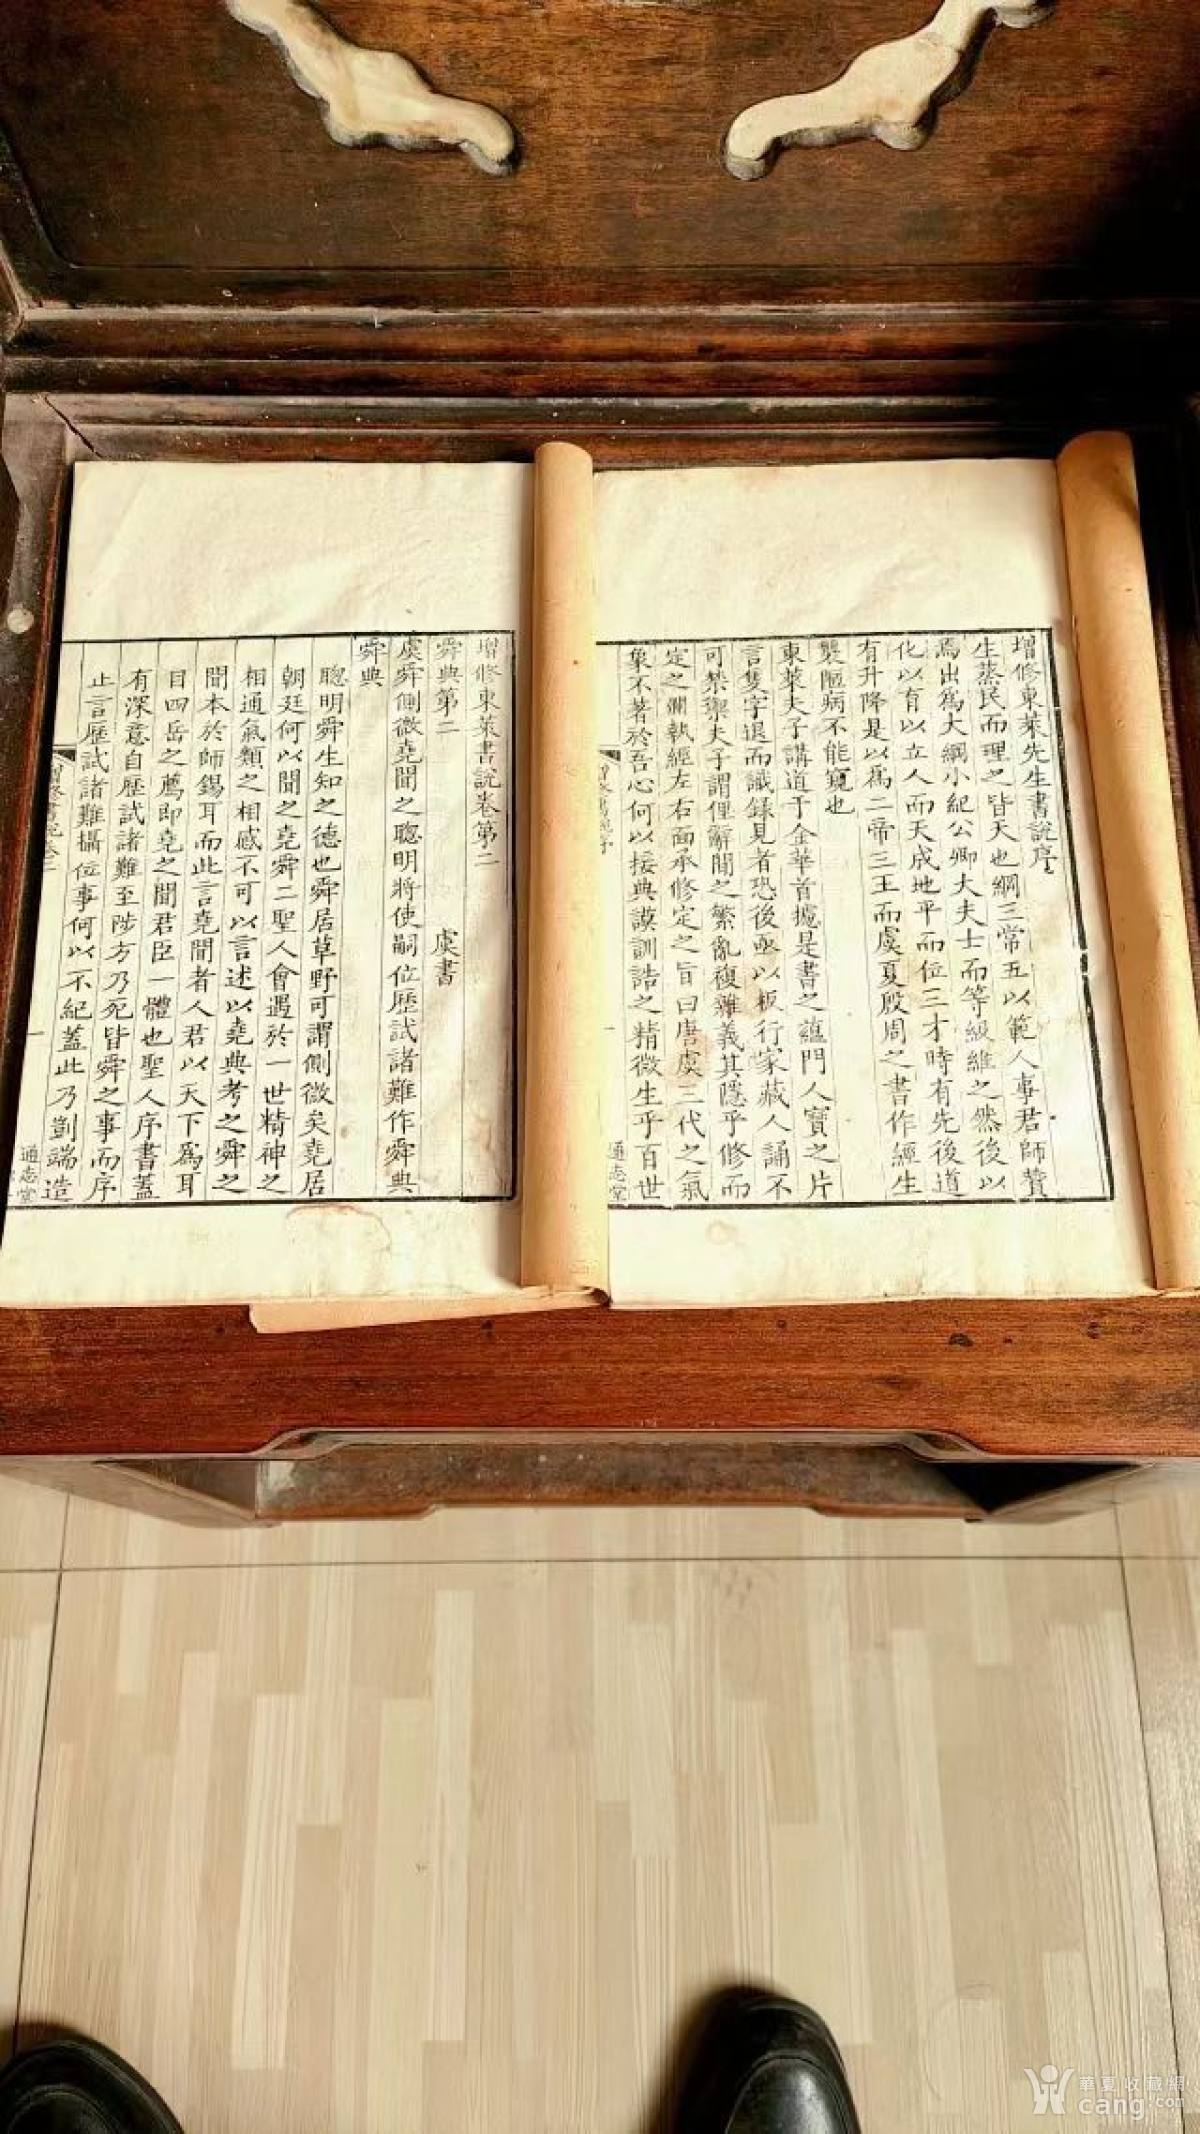 增修東萊先生書說序
生蒸民而理之皆天也綱三常五以範人事君師贊
焉出爲大綱小紀公卿大夫士而等級維之然後以
化以育以立人而天成地平而位三才時有先後道
有升降是以爲二帝三王而虞夏殷周之書作經生
襲陋病不能窺也
東萊夫子講道于金華首攄是書之蘊門人寶之片
言隻字退而識錄見者恐後亟以板行家藏人誦不
可禁禦夫子謂俚辭間之繁亂複雜義其隱乎修而
定之瀾執經左右面承修定之旨曰唐虞三代之氣
象不著於吾心何以接典謨訓誥之精微生乎百世
增修書說序
通志堂
增修東萊書說卷第二
舜典第二 虞書
虞舜側微堯聞之聰明將使嗣位歷試諸難作舜典
舜典
聰明舜生知之德也舜居草野可謂側微矣堯居
朝廷何以聞之堯舜二聖人會遇於一世精神之
相通氣類之相感不可以言述以堯典考之舜之
聞本於師錫耳而此言堯聞者人君以天下爲耳
目四岳之薦即堯之聞君臣一體也聖人序書蓋
有深意自歷試諸難至陟方乃死皆舜之事而序
止言歷試諸難攝位事何以不紀蓋此乃劉端造
增修書說卷二
一
通志堂
華夏收藏網
cang.com